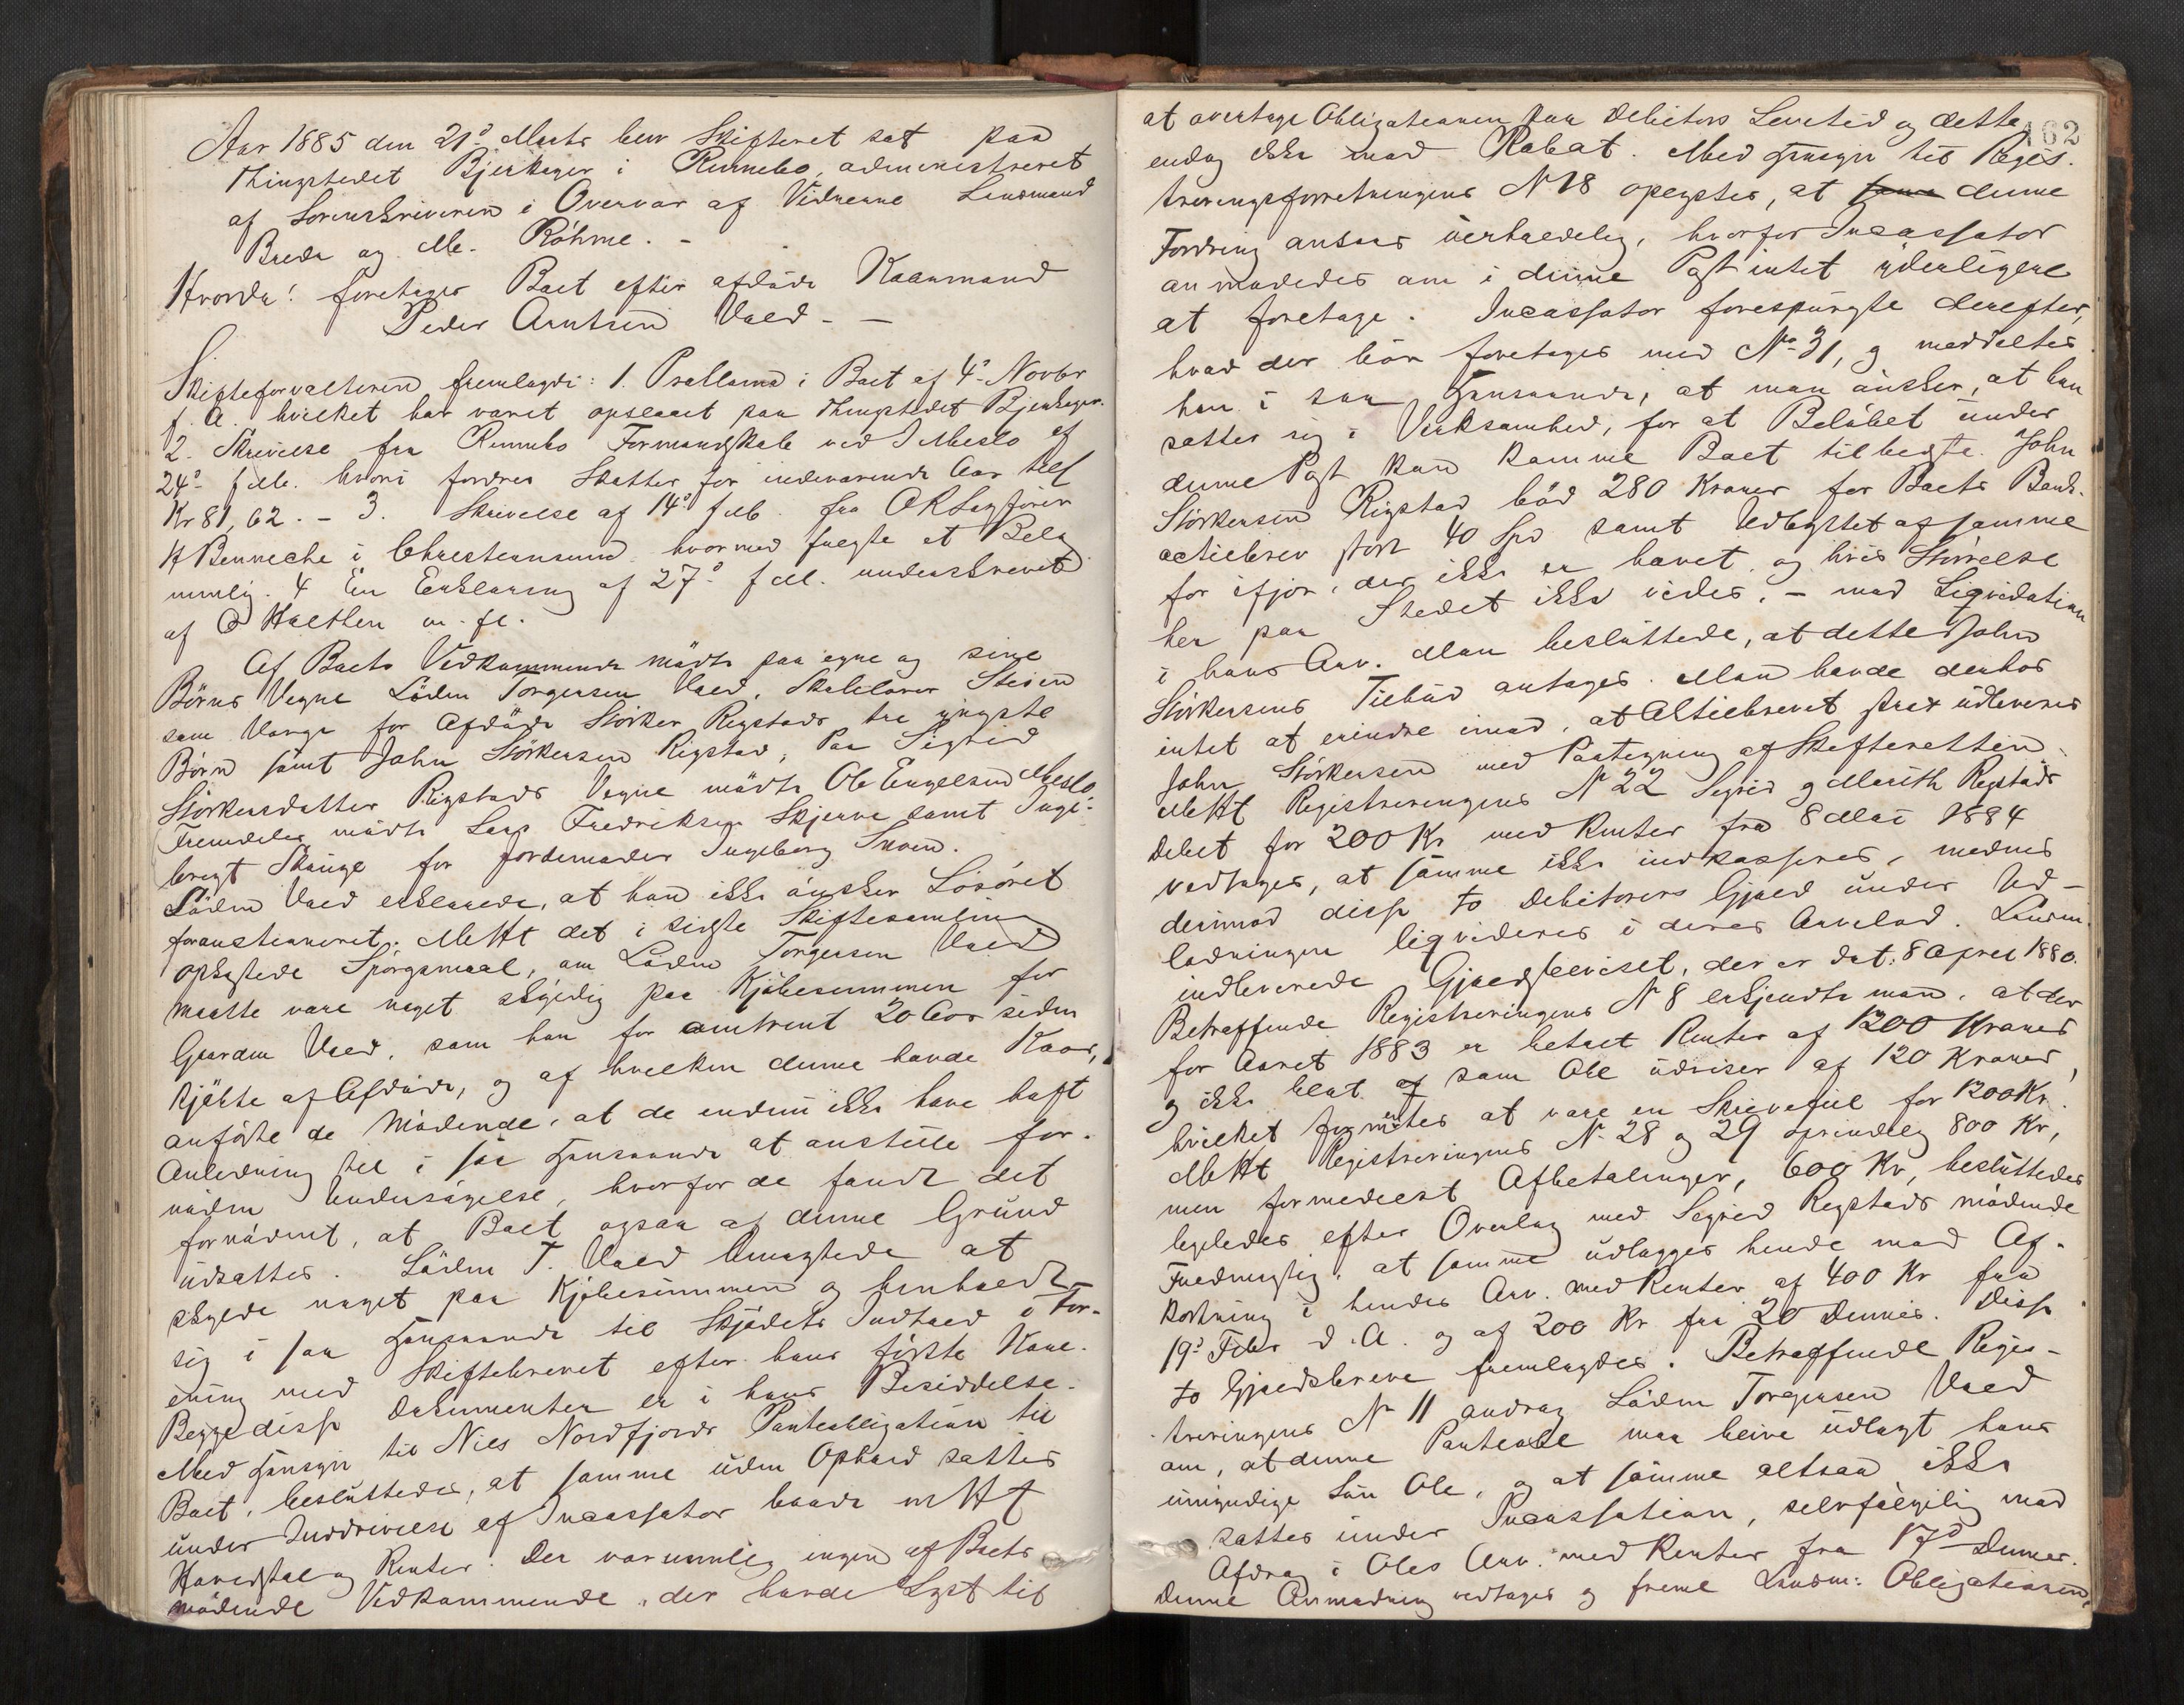 Aar 1885 den 21de Marts blev Skifteret sat paa
Thingstedet Bjerkager i Rennebo, administreret
af Sorenskriveren i Overvær af Vidnerne Lensmand
Breda og M. Röhme. -
Hvorda! foretages Boet efter afdöde Kaarmand
Peder Arntsen Vold - -
Skifteforvalteren fremlagde: 1. Proklama i Boet af 4de Novbr
f. A. hvilket har været opslaaet paa Thingstedet Bjerkager.
2. Skrivelse fra Rennebo Formandskab ved J Meslo af
24de f. M. hvori fordres Skatter for indeværende Aar till
Kr 81,62. - 3. Skrivelse af 14de f M. fra ORSagförer
H Benneche i Christiansund hvormed fulgte et Belöb
nemlig. 4 En Erklæring af 27de f M. underskrevet
af O Halthen m. fl.
Af Boets Vedkommende mödte paa egne og sine
Börns Vegne Löden Torgersen Vold, Skolelærer Steien
som Værge for Afdöde Störker Rigstads tre yngste
Börn samt John Störkersen Rigstad, Paa Sigrid
Störkersdatter Rigstads Vegne mödte Ole Engelsen Meslo
Fremdeles mödte Lars Fredriksen Skjerve samt Inge-
brigt Skauge for Jordemoder Ingeborg Snoen.
Löden Vold erklærede, at han ikke önsker Lösöret
foranstaaneret. M H t det i sidste Skiftesamling
opkastede Spörgsmaal, om Löden Torgersen Vold
maatte være noget skyldig paa Kjöbesummen for
Gaarden Vold, som han for omtrent 20 Aar siden
kjöbte af Afdöde, og af hvilken denne havde Kaar,
anförte de Mödende, at de endnu ikke have havt
Anledning til i saa Henseende at anstille for-
nöden Undersögelse, hvorfor de fandt det
fornödent, at Boet ogsaa af denne Grund
udsattes. Löden T. Vold benægtede at
skylde noget paa Kjöbesummen og henholdt
sig i saa Henseende til Skjödets Indhold i For-
ening med Skiftebrevet efter hans förste Kone.
Begge disse Dokumenter er i hans Besiddelse.
Med Hensyn til Nils Nordfjords Panteobligation til
Boet, besluttedes, at samme uden Ophold sattes
under Inddrivelse af Incassator baade m H t
Hovedstol og Renter. Der var nemlig ingen af Boets
mödende Vedkommende, der havde Lyst til
162
at overtage Obligationen paa Debitors Levetid og dette
endog ikke mod Rabat. Med Hensyn til Regis-
treringsforretningens N 18 oplystes, at denne
Fordring ansees uerholdelig, hvorfor Incassator
anmodedes om i denne Post intet yderligere
at foretage. Incassator forespurgte derefter,
hvad der bör foretages med No 31, og meddeltes
ham i saa Henseende, at man önsker, at han
sætter sig i Virksomhed, for at Belöbet under
denne Post kan komme Boet tilbedste. John
Störkersen Rigstad böd 280 Kroner for Boets Bank-
actiebrev stort 40 Spd samt Udbyttet af samme
for ifjor, der ikke er hævet, og hvis Störrelse
her paa Stedet ikke vides, - mod Liqvidation
i hans Arv. Man besluttede, at dette John
Störkersens Tilbud antages. Man havde derhos
intet at erindre imod, at Aktiebrevet strax udleveres
John Störkersen med Paategning af Skifteretten.
M H t Registreringens N 22 Sigrid og Marith Rigstads
Debet for 200 Kr med Renter fra 8 Mai 1884
vedtages, at samme ikke indkasseres, medens
derimod disse to Debitorers Gjæld under Ud-
lodningen liqvideres i deres Arvelod. Lensm.
indleverede Gjældsbeviset, der er dat: 8 April 1880.
Betræffende Registreringens N 8 erkjendte man, at der
for Aaret 1883 er betalt Renter af 1200 Kroner
og ikke blot af som Obl udviser af 120 Kroner,
hvilket formentes at være en Skrivefeil for 1200 Kr.
M H t Registreringens N- 28 og 29 oprindelig 800 Kr,
men formedelst Afbetalinger, 600 Kr, besluttedes
ligeledes efter Overlæg med Sigrid Rigstads mödende
Fuldmægtig, at samme udlægges hende mod Af-
kortning i hendes Arv. med Renter af 400 Kr fra
19de Febr d. A. og af 200 Kr fra 20 Dennes. Disse
to Gjældsbreve fremlagdes. Betræffende Regis-
treringens N 11 androg Löden Torgersen Vold
om, at denne Panteobl maa blive udlagt hans
umyndige Sön Ole, og at samme altsaa ikke
sættes under Incassation, selvfölgelig mod
Afdrag i Oles Arv. med Renter fra 17de Dennes.
Denne Anmodning vedtages og freml Lensm: Obligationen.